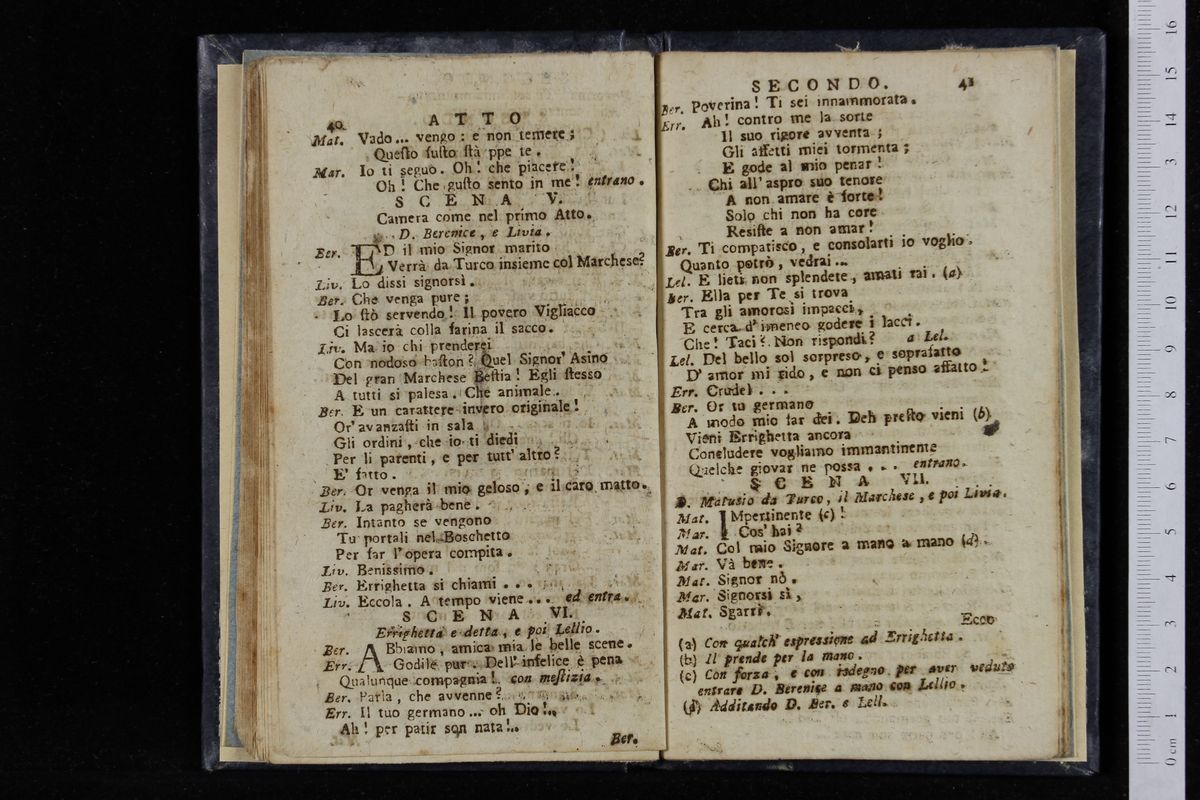 40 ATTO
Mat. Vado... vengo: e non temere;
Questo fusto stà ppe te.
Mar. Io ti seguo. Oh! che piacere!
Oh! Che gusto sento in me! entrano.
SCENA V.
Camera come nel primo Atto.
D. Berenice, e Livia.
Ber. ED il mio Signor marito
Verrà da Turco insieme col Marchese?
Liv. Lo dissi signorsì.
Ber. Che venga pure;
Lo stò servendo! Il povero Vigliacco
Ci lascerà colla farina il sacco.
Liv. Ma io chi prenderei
Con nodoso baston? Quel Signor' Asino
Del gran Marchese Bestia! Egli stesso
A tutti si palesa. Che animale.
Ber. E un carattere invero originale!
Or' avanzasti in sala
Gli ordini, che io ti diedi
Per li parenti, e per tutt' altro?
E' fatto.
Ber. Or venga il mio geloso, e il caro matto.
Liv. La pagherà bene.
Ber. Intanto se vengono
Tu portali nel Boschetto
Per far l'opera compita.
Liv. Benissimo.
Ber. Errighetta si chiami...
Liv. Eccola. A tempo viene... ed entra.
SCENA VI.
Errighetta e detta, e poi Lellio.
Ber. ABbiamo, amica mia le belle scene.
Err. Godile pur. Dell' infelice è pena
Qualunque compagnia! con mestizia.
Ber. Parla, che avvenne?
Err. Il tuo germano... oh Dio!..
Ah! per patir son nata!..
Ber.
SECONDO. 41
Ber. Poverina! Ti sei innammorata.
Err. Ah! contro me la sorte
Il suo rigore avventa;
Gli affetti miei tormenta;
E gode al mio penar!
Chi all' aspro suo tenore
A non amare è forte!
Solo chi non ha core
Resiste a non amar!
Ber. Ti compatisco, e consolarti io voglio.
Quanto potrò, vedrai...
Lel. E lieti non splendete, amati rai. (a)
Ber. Ella per Te si trova
Tra gli amorosi impacci,
E cerca d'imeneo godere i lacci.
Che! Taci? Non rispondi? a Lel.
Lel. Del bello sol sorpreso, e soprafatto
D' amor mi rido, e non ci penso affatto.
Err. Crudel...
Ber. Or tu germano
A modo mio far dei. Deh presto vieni (b)
Vieni Errighetta ancora
Concludere vogliamo immantinente
Quelche giovar ne possa... entrano.
SCENA VII.
D. Matusio da Turco, il Marchese, e poi Livia.
Mat. IMpertinente (c)!
Mar. Cos' hai?
Mat. Col mio Signore a mano a mano (d).
Mar. Và bene.
Mat. Signor nò.
Mar. Signorsì sì,
Mat. Sgarrì.
Ecco
(a) Con qualch' espressione ad Errighetta.
(b) Il prende per la mano.
(c) Con forza, e con isdegno per aver veduto
entrare D. Berenice a mano con Lellio.
(d) Additando D. Ber. e Lell.
16
15
14
13
12
11
10
9
8
7
6
5
4
3
2
1
0 cm